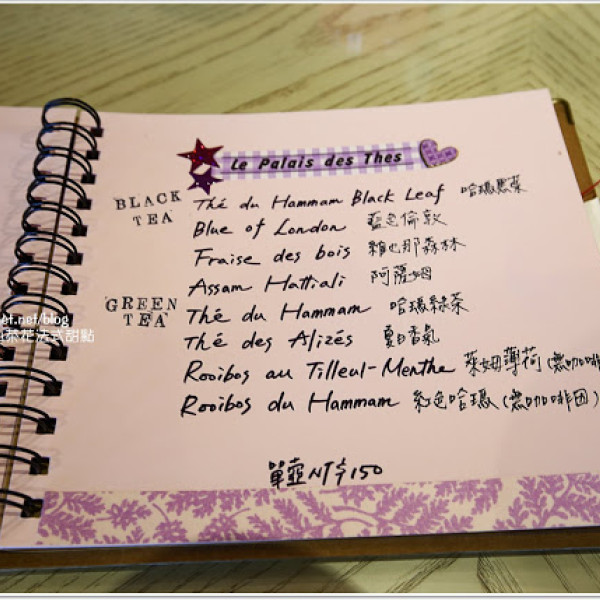 Le Palais des Thes
BLACK TEA
Thé du Hammam Black Leaf 哈瑪黑茶
Blue of London 藍色倫敦
Fraise des bois 維也那森林
Assam Hattiali 阿薩姆
GREEN TEA
Thé du Hammam 哈瑪綠茶
Thé des Alizés 夏日香氣
Rooibos au Tilleul-Menthe 萊姆薄荷(無咖啡
Rooibos du Hammam 紅色哈瑪(無咖啡因)
單壺NT$150
et.net/blog
茶花法式甜點